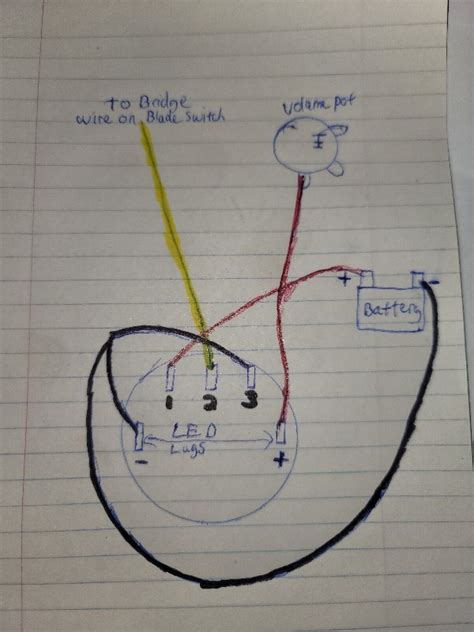 to Bridge
wire on Blade switch
volume pot
+ -
Battery
1 2 3
LED
Lugs
- +